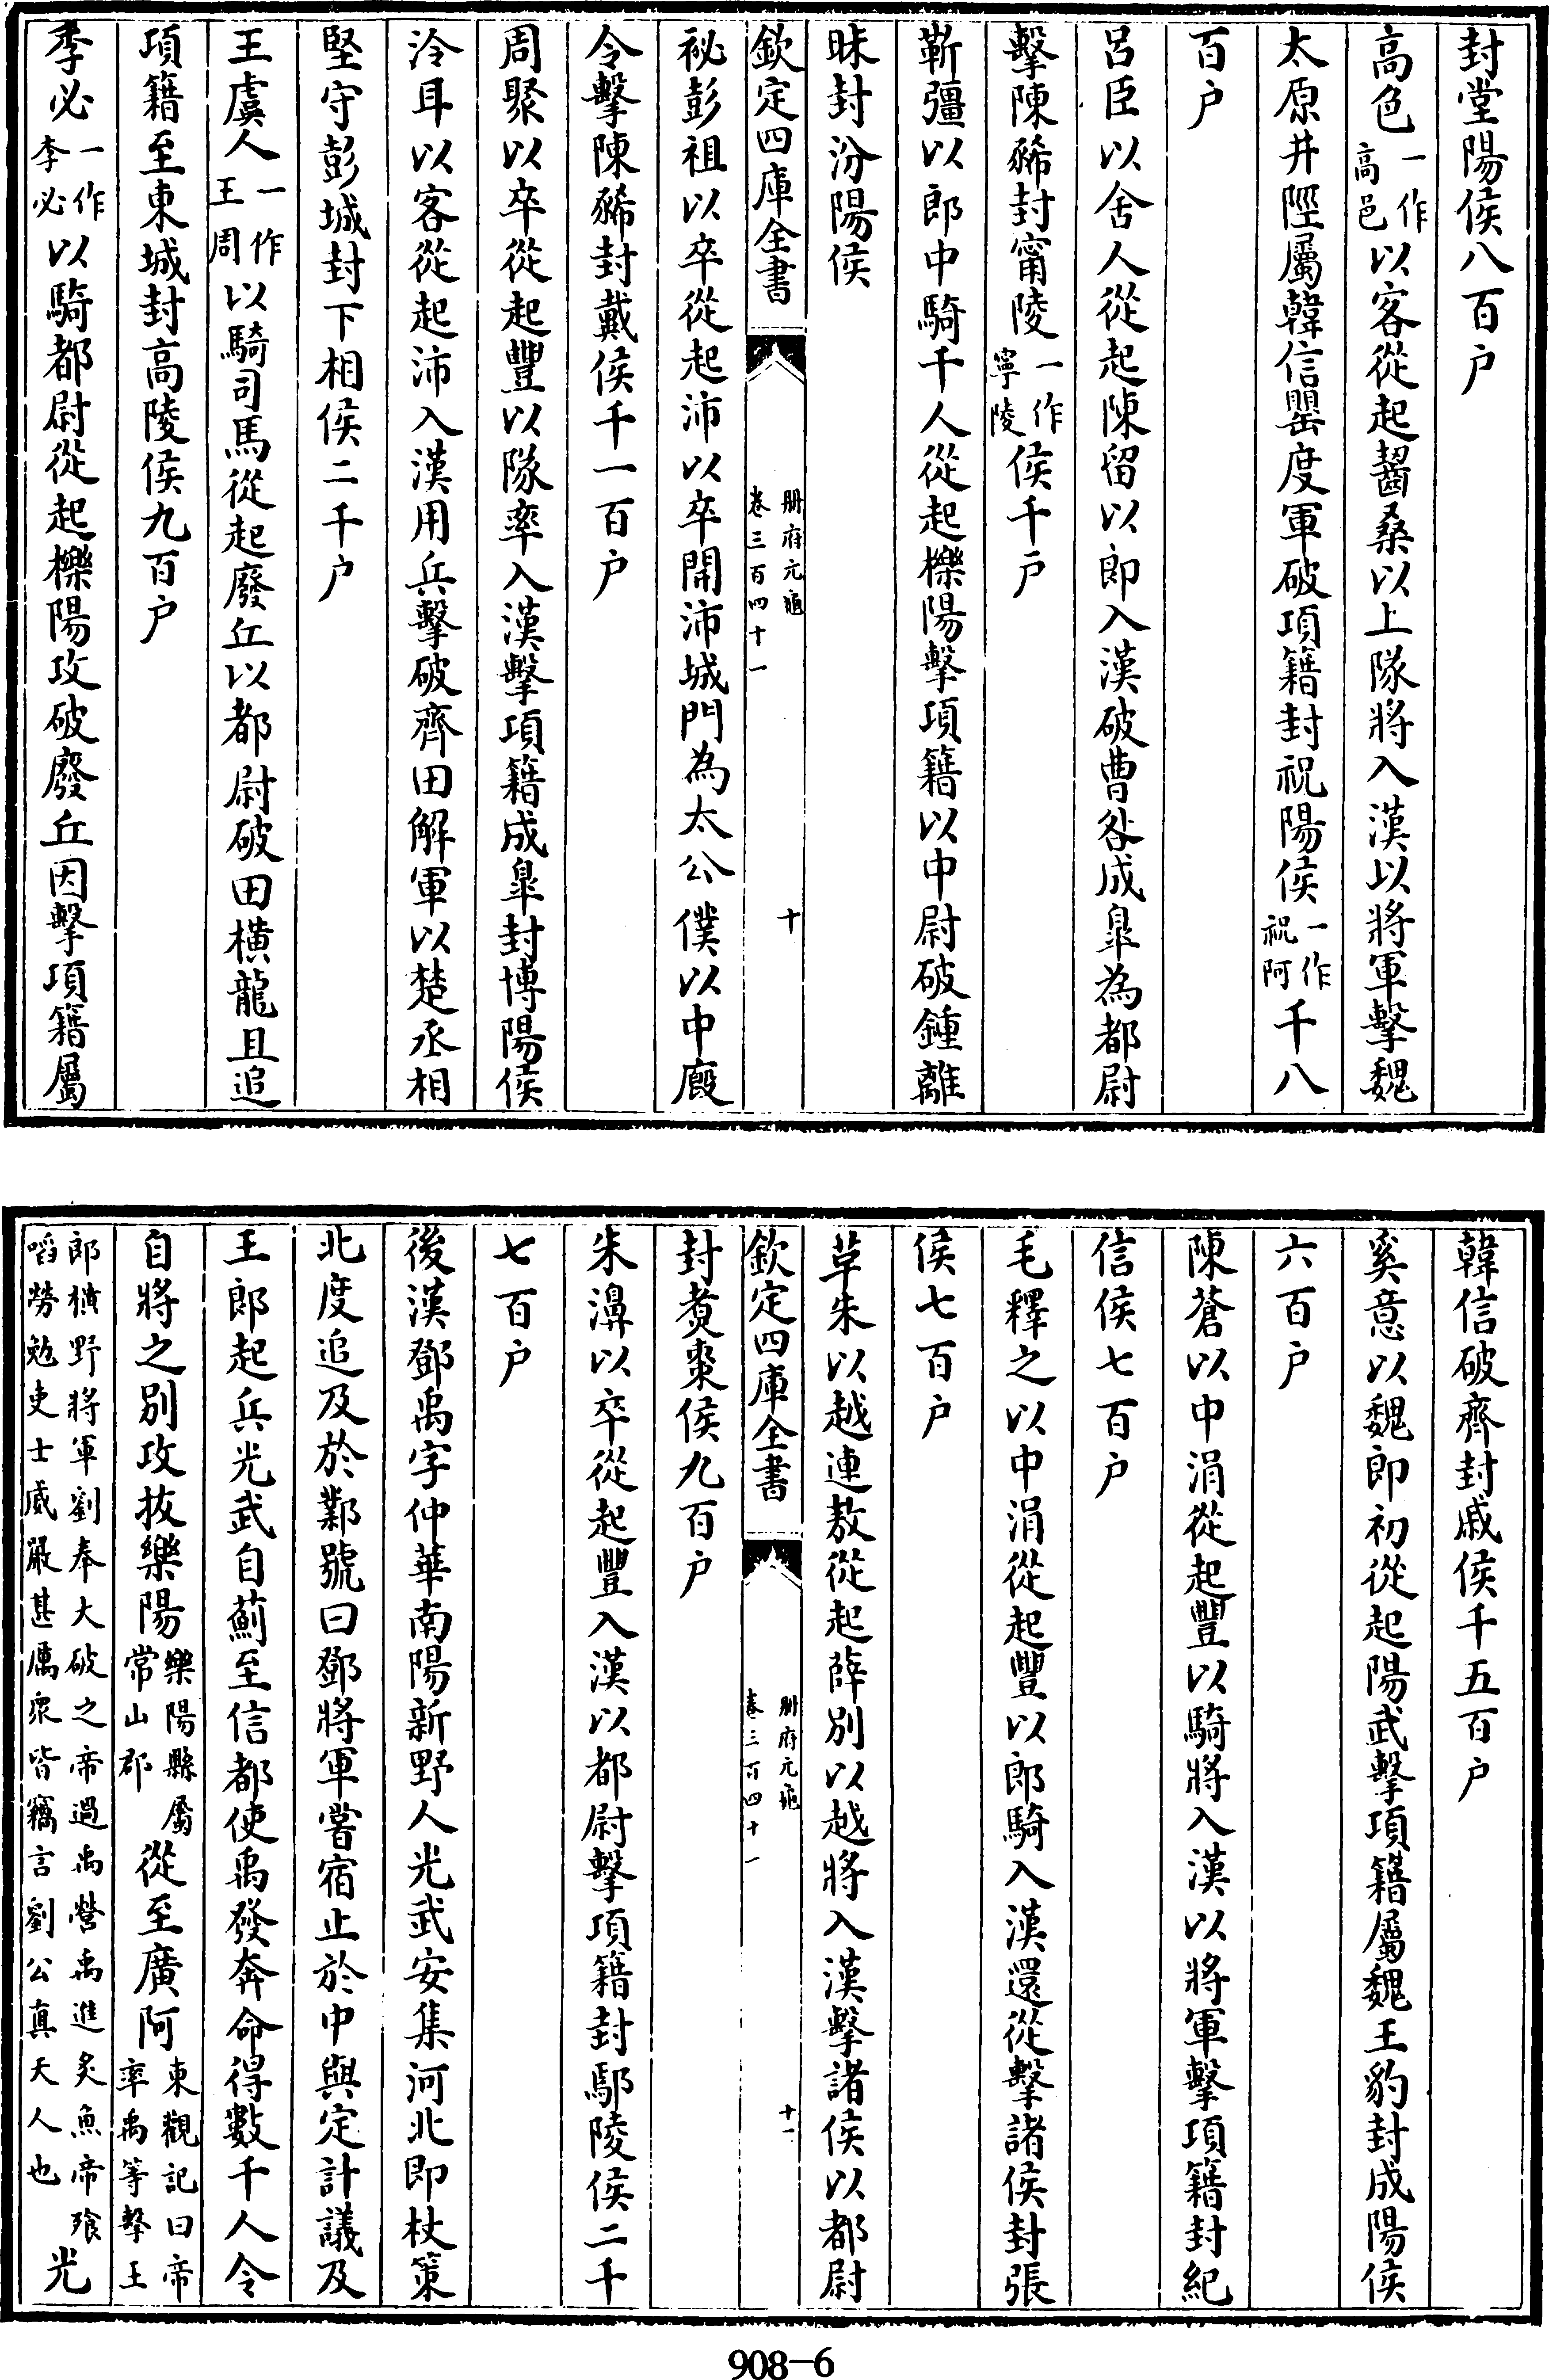 封堂陽侯八百户
高色一作高邑以客從起齧桑以上隊將入漢以將軍擊魏
太原井陘屬韓信罌度軍破項籍封祝陽侯一作祝阿千八
百户
吕臣以舍人從起陳留以郎入漢破曹咎成臯為都尉
擊陳豨封甯陵一作寧陵侯千戸
靳彊以郎中騎千人從起櫟陽擊項籍以中尉破鍾離
眛封汾陽侯
欽定四庫全書
册府元龜
卷三百四十一
十
祕彭祖以卒從起沛以卒開沛城門為太公僕以中廐
令擊陳豨封戴侯千一百户
周聚以卒從起豐以隊率入漢擊項籍成臯封博陽侯
泠耳以客從起沛入漢用兵擊破齊田解軍以楚丞相
堅守彭城封下相侯二千户
王虞人一作王周以騎司馬從起廢丘以都尉破田橫龍且追
項籍至東城封高陵侯九百户
季必一作李必以騎都尉從起櫟陽攻破廢丘因擊項籍屬
韓信破齊封戚侯千五百户
奚意以魏郎初從起陽武擊項籍屬魏王豹封成陽侯
六百户
陳蒼以中涓從起豐以騎將入漢以將軍擊項籍封紀
信侯七百户
毛釋之以中涓從起豐以郎騎入漢還從擊諸侯封張
侯七百户
草朱以越連敖從起薛別以越將入漢擊諸侯以都尉
欽定四庫全書
册府元龜
卷三百四十一
十一
封煑棗侯九百户
朱濞以卒從起豐入漢以都尉擊項籍封鄢陵侯二千
七百户
後漢鄧禹字仲華南陽新野人光武安集河北即杖策
北度追及於鄴號曰鄧將軍嘗宿止於中與定計議及
王郎起兵光武自薊至信都使禹發奔命得數千人令
自將之別攻拔樂陽樂陽縣屬常山郡從至廣阿東觀記曰帝率禹等擊王
郎橫野將軍劉奉大破之帝過禹營禹進炙魚帝飱㗖勞勉吏士威嚴甚厲衆皆竊言劉公真天人也光
908-6